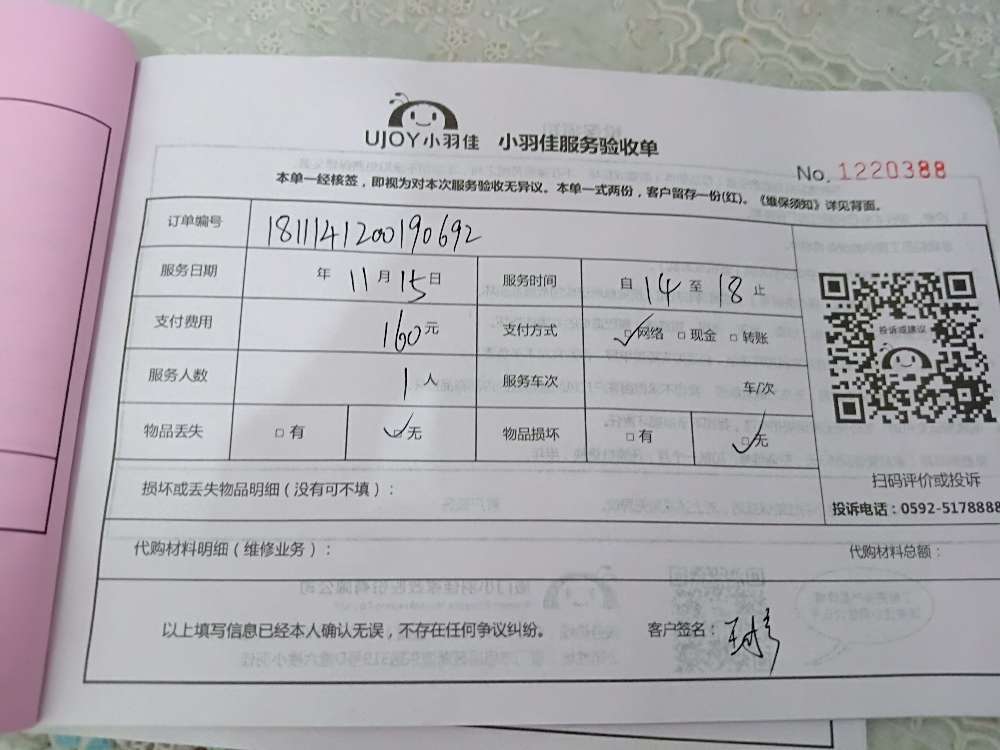 UJOY小羽佳 小羽佳服务验收单
No. 1220388
本单一经核签，即视为对本次服务验收无异议。本单一式两份，客户留存一份(红)。《维保须知》详见背面。
订单编号 181114120019 0692
服务日期 年 11月15日 服务时间 自14至18止
支付费用 160元 支付方式 ☑网络 □现金 □转账
服务人数 1人 服务车次 车/次
物品丢失 □有 ☑无 物品损坏 □有 ☑无
投诉或建议
扫码评价或投诉
投诉电话：0592-5178888
损坏或丢失物品明细（没有可不填）：
代购材料明细（维修业务）： 代购材料总额：
以上填写信息已经本人确认无误，不存在任何争议纠纷。 客户签名：